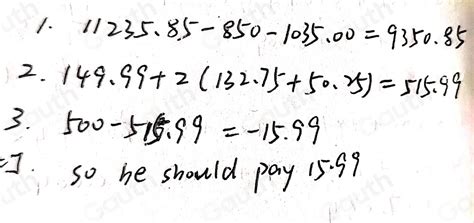 1. 11235.85-850-1035.00=9350.85
2. 149.99+2(132.75+50.25)=515.99
3. 500-515.99=-15.99
so he should pay 15.99